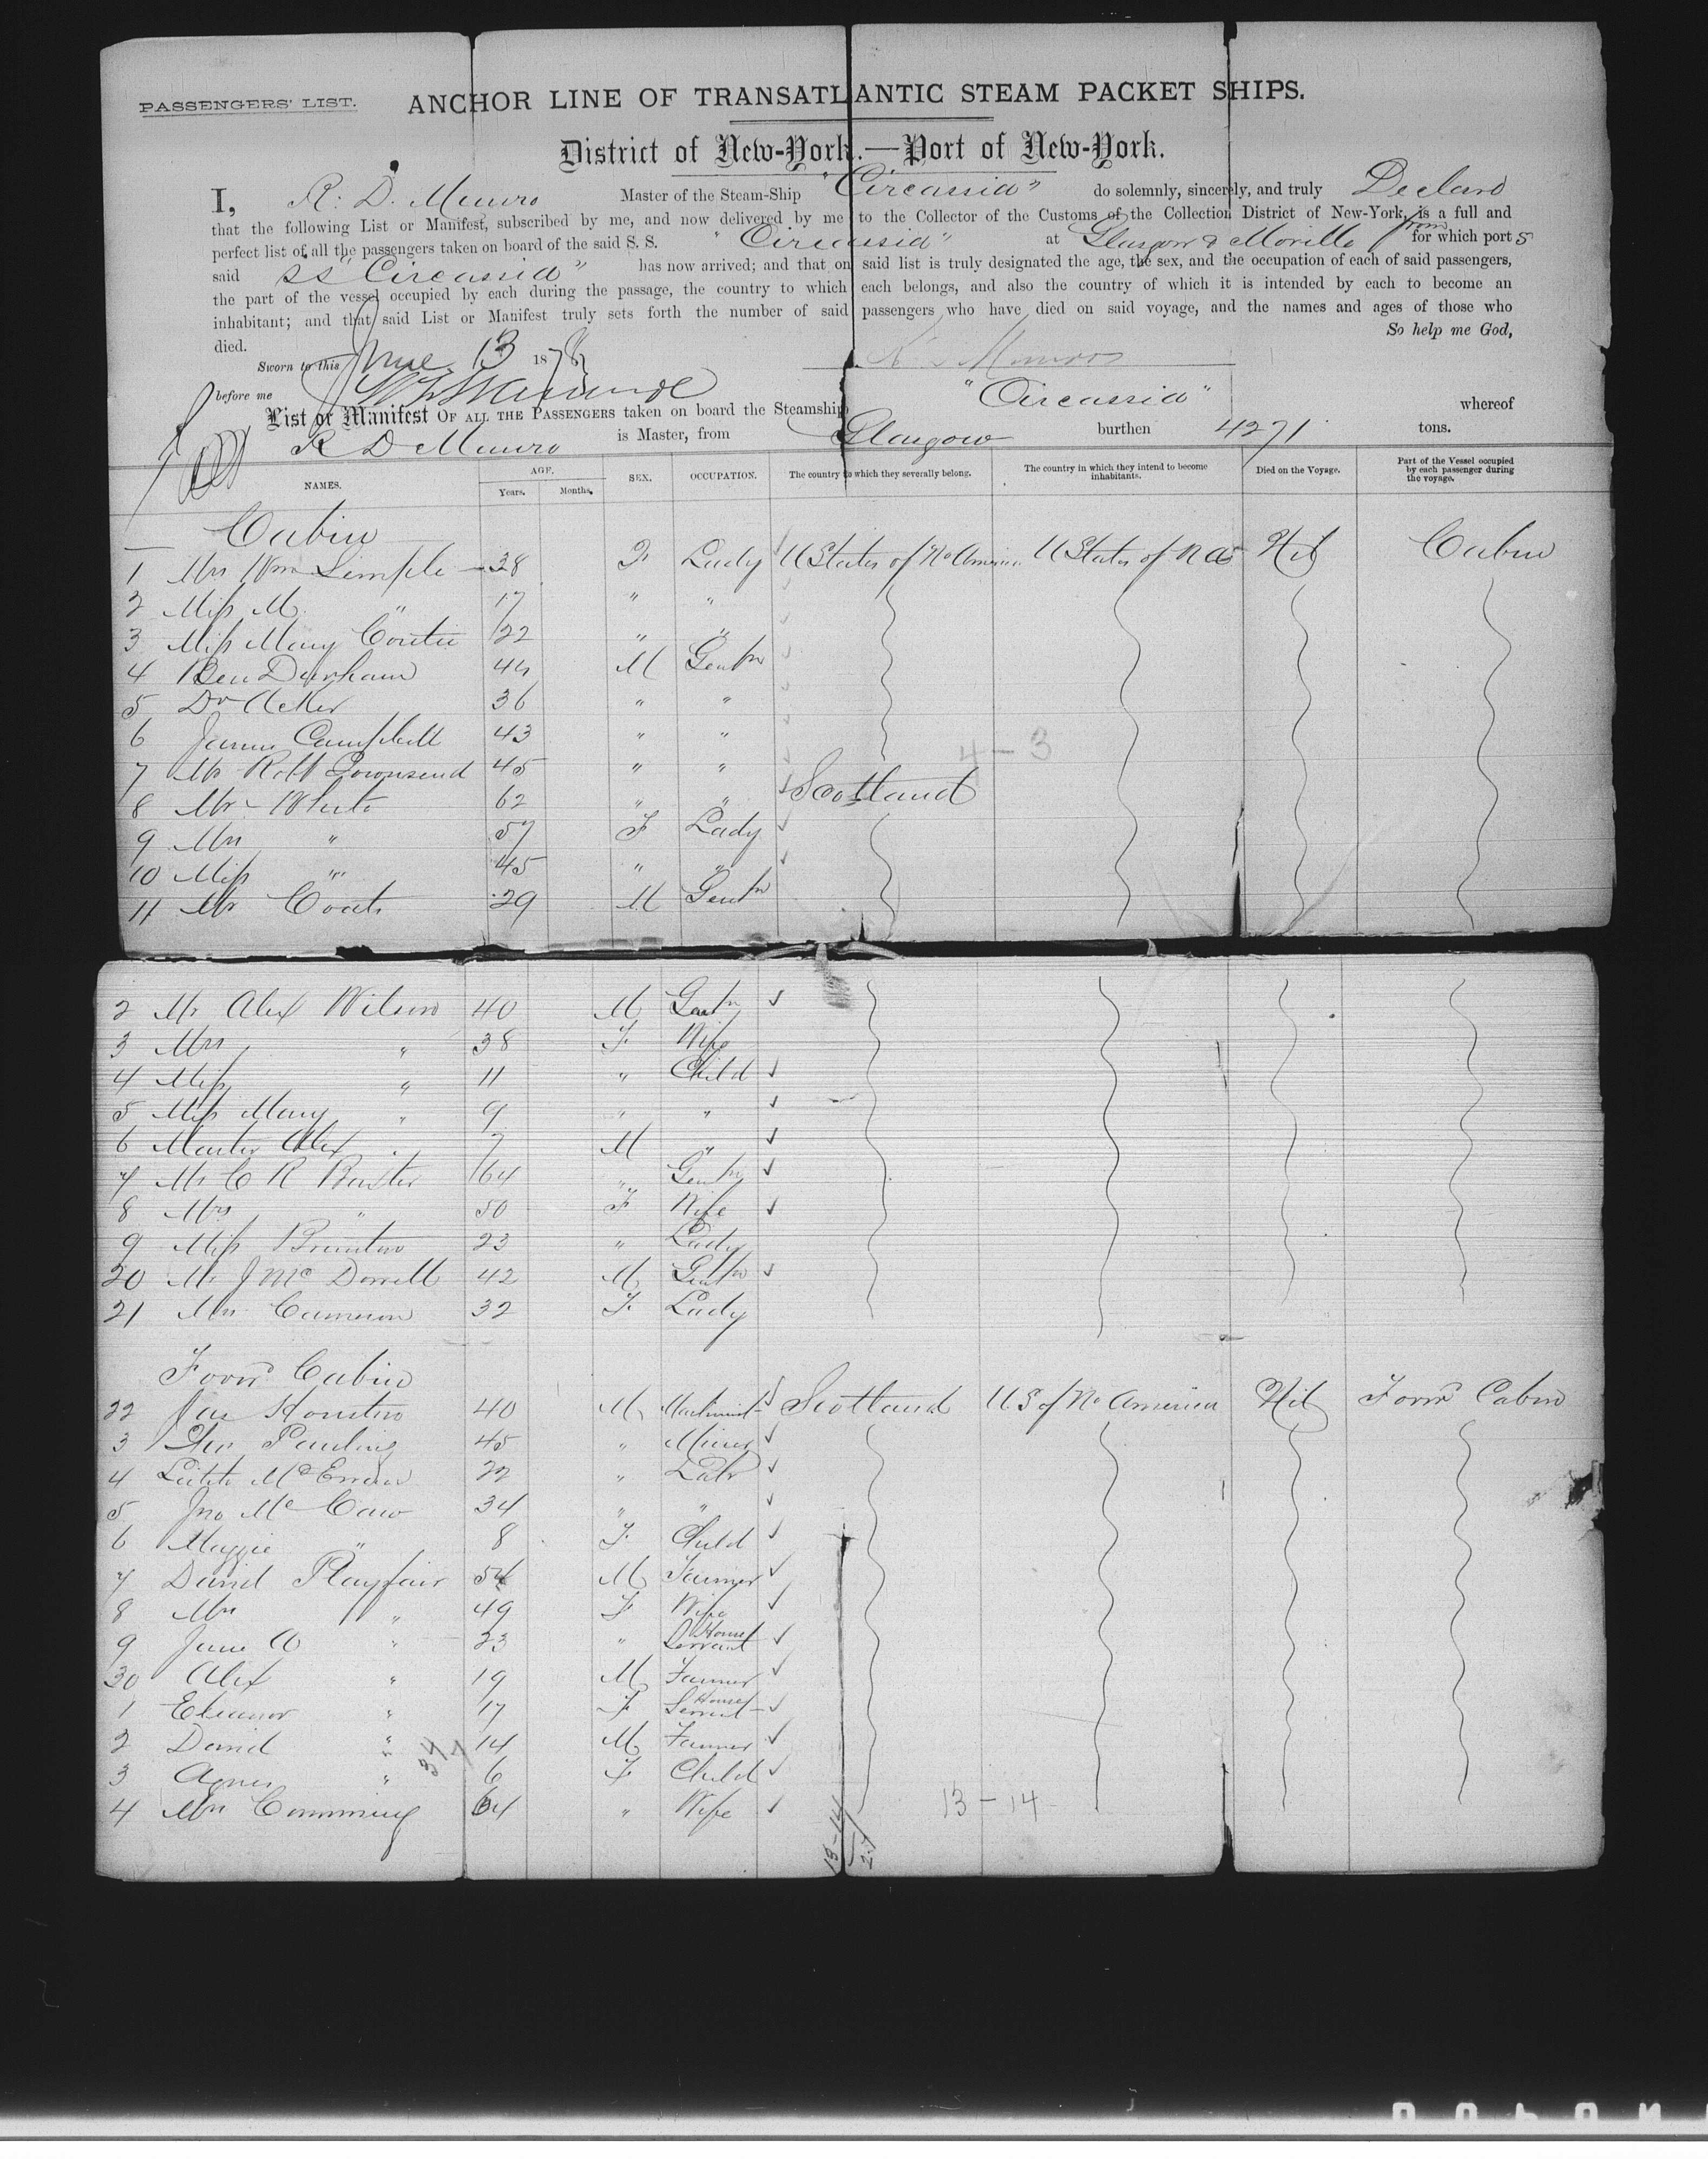 PASSENGERS' LIST. ANCHOR LINE OF TRANSATLANTIC STEAM PACKET SHIPS.
District of New-York.—Port of New-York.
I, R. D. Munro Master of the Steam-Ship "Circassia" do solemnly, sincerely, and truly Declare
that the following List or Manifest, subscribed by me, and now delivered by me to the Collector of the Customs of the Collection District of New-York, is a full and
perfect list of all the passengers taken on board of the said S. S. "Circassia" at Glasgow & Moville from for which port s
said SS "Circassia" has now arrived; and that on said list is truly designated the age, the sex, and the occupation of each of said passengers,
the part of the vessel occupied by each during the passage, the country to which each belongs, and also the country of which it is intended by each to become an
inhabitant; and that said List or Manifest truly sets forth the number of said passengers who have died on said voyage, and the names and ages of those who
died. So help me God,
Sworn to this June 13 1878 R D Munro
before me
List or Manifest OF ALL THE PASSENGERS taken on board the Steamship "Circassia" whereof
R D Munro is Master, from Glasgow burthen 4271 tons.
NAMES. AGE. Years. Months. SEX. OCCUPATION. The country to which they severally belong. The country in which they intend to become inhabitants. Died on the Voyage. Part of the Vessel occupied by each passenger during the voyage.
Cabin
1 Mrs Wm Semple 38 F Lady U States of No America U States of N A Nil Cabin
2 Miss M. " 17 " "
3 Miss Mary Coutie 22 " "
4 Ben Durham 44 M Gentn
5 Dr Acker 36 " "
6 James Campbell 43 " "
4 - 3
7 Mr Robt Townsend 45 " "
8 Mr White 62 " " Scotland
9 Mrs " 57 F Lady
10 Miss " 45 " "
11 Mr Coats 29 M Gentn
2 Mr Alex Wilson 40 M Gentn
3 Mrs " 38 F Wife
4 Miss " 11 " Child
5 Miss Mary " 9 " "
6 Master Alex " 7 M "
7 Mr C R 64 " Gentn
8 Mrs " 50 F Wife
9 Miss Brunton 23 " Lady
20 Mr J Mc Dorrell 42 M Gentn
21 Mrs Cameron 32 F Lady
Forrd Cabin
22 Jas Houston 40 M Machinist Scotland U S of No America Nil Forrd Cabin
3 Pauling 45 " Miner
4 22 " Labr
5 Jno Mc Caw 34 " "
6 Maggie " 8 F Child
7 David Playfair 54 M Farmer
8 Mrs " 49 F Wife
9 Jane A " 23 " House Servant
30 Alex " 19 M Farmer
1 Eleanor " 17 F House Servant
2 David " 14 M Farmer
3 Agnes " 6 F Child
4 Mrs Cumming 64 " Wife
13 - 14